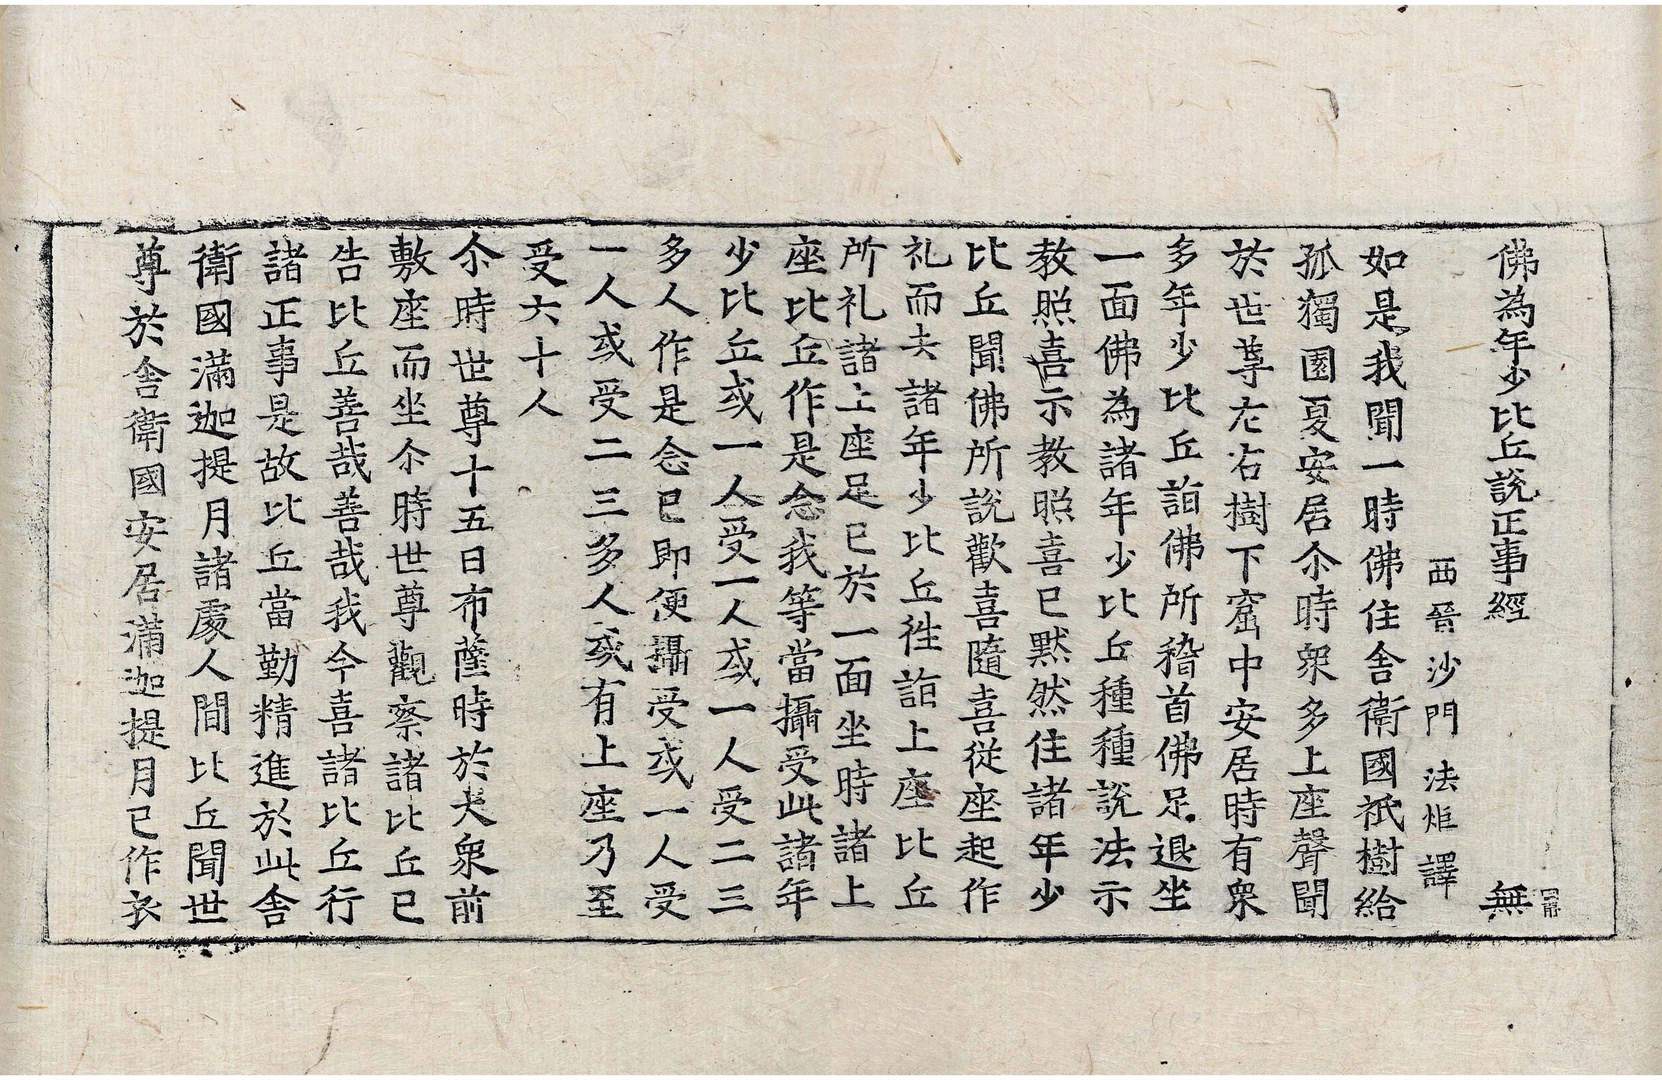 佛為年少比丘說正事經 無
西晉沙門法炬譯
如是我聞一時佛住舍衛國祇樹給
孤獨園夏安居尒時衆多上座聲聞
於世尊左右樹下窟中安居時有衆
多年少比丘詣佛所稽首佛足退坐
一面佛為諸年少比丘種種說法示
教照喜示教照喜已默然住諸年少
比丘聞佛所說歡喜隨喜從座起作
礼而去諸年少比丘徃詣上座比丘
所礼諸上座足已於一面坐時諸上
座比丘作是念我等當攝受此諸年
少比丘或一人受一人或一人受二三
多人作是念已即便攝受或一人受
一人或受二三多人或有上座乃至
受六十人
尒時世尊十五日布薩時於大衆前
敷座而坐尒時世尊觀察諸比丘已
告比丘善哉善哉我今喜諸比丘行
諸正事是故比丘當勤精進於此舍
衛國滿迦提月諸處人間比丘聞世
尊於舍衛國安居滿迦提月已作衣